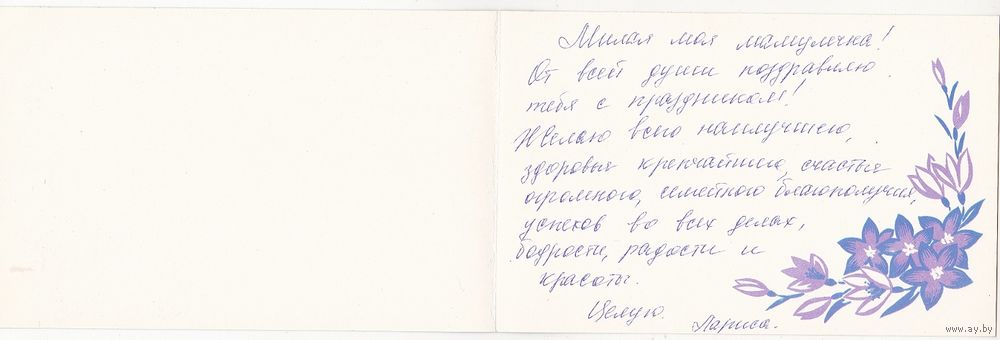 Милая моя мамулечка!
От всей души поздравляю
тебя с праздником!
Желаю всего наилучшего,
здоровья крепчайшего, счастья
огромного, семейного благополучия,
успехов во всех делах,
бодрости, радости и
красоты.
Целую.
Лариса.
www.ay.by